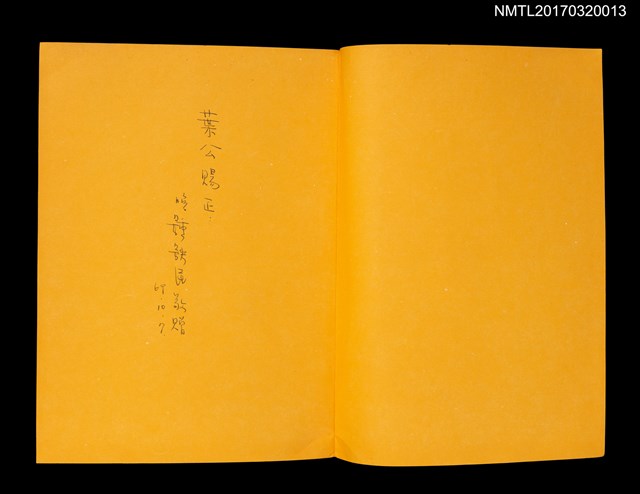 NMTL20170320013
葉公賜正：
晚鍾鉄民敬贈
65.10.7.